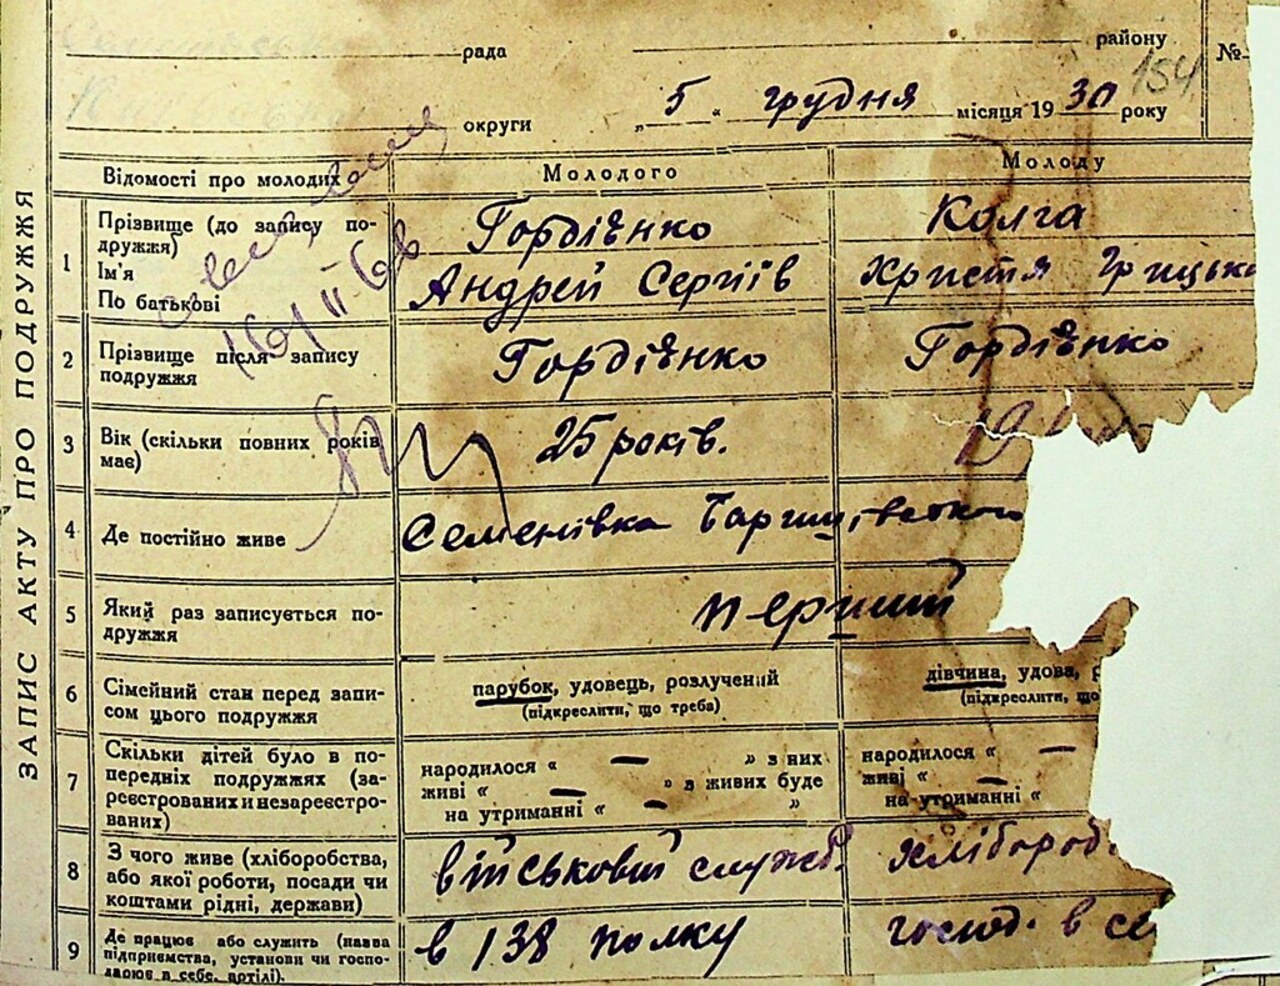 рада району №
154
округи „ 5 “ грудня місяця 19 30 року
ЗАПИС АКТУ ПРО ПОДРУЖЖЯ
Відомості про молодих Молодого Молоду
1 Прізвище (до запису по-
дружжя) Гордієнко Колга
Ім'я
По батькові Андрей Сергіїв Христя Грицьк
16/II-68
2 Прізвище після запису
подружжя Гордієнко Гордієнко
3 Вік (скільки повних років
має) 25 років. 19
4 Де постійно живе Семенівка
5 Який раз записується по-
дружжя перший
6 Сімейний стан перед запи-
сом цього подружжя парубок, удовець, розлучений дівчина, удова,
(підкреслити, що треба) (підкреслити, що
7 Скільки дітей було в по-
передніх подружжях (за-
реєстрованих и незареєстро-
ваних)
народилося « — » з них народилося « —
живі « — » в живих буде живі « —
на утриманні « — » на утриманні «
8 З чого живе (хліборобства,
або якої роботи, посади чи
коштами рідні, держави) військовій служб. хлібороб
9 Де працює або служить (назва
підприємства, установи чи госпо-
дарює в себе, артілі). в 138 полку господ. в се